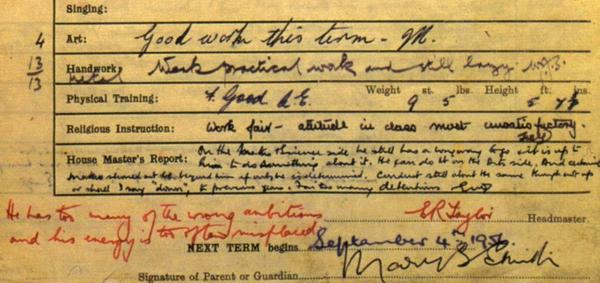 Singing:
4 Art: Good work this term - JM.
13/13 Handwork: Metal Weak practical work and still lazy.
Physical Training: F. Good A.E. Weight 9 st. 5 lbs. Height 5 7½ ins.
Religious Instruction: Work fair - attitude in class most unsatisfactory.
House Master's Report: On the Maths & Science side he still has a long way to go & it is up to
him to do something about it. He can do it on the Arts side. And certain
marks should not be beyond him if only he is determined. Conduct still about the same though not up
or shall I say "down", to previous years. Far too many detentions
He has too many of the wrong ambitions
and his energy is too often misplaced
E R Taylor Headmaster.
NEXT TERM begins September 4th 1956
Signature of Parent or Guardian Mary E Smith